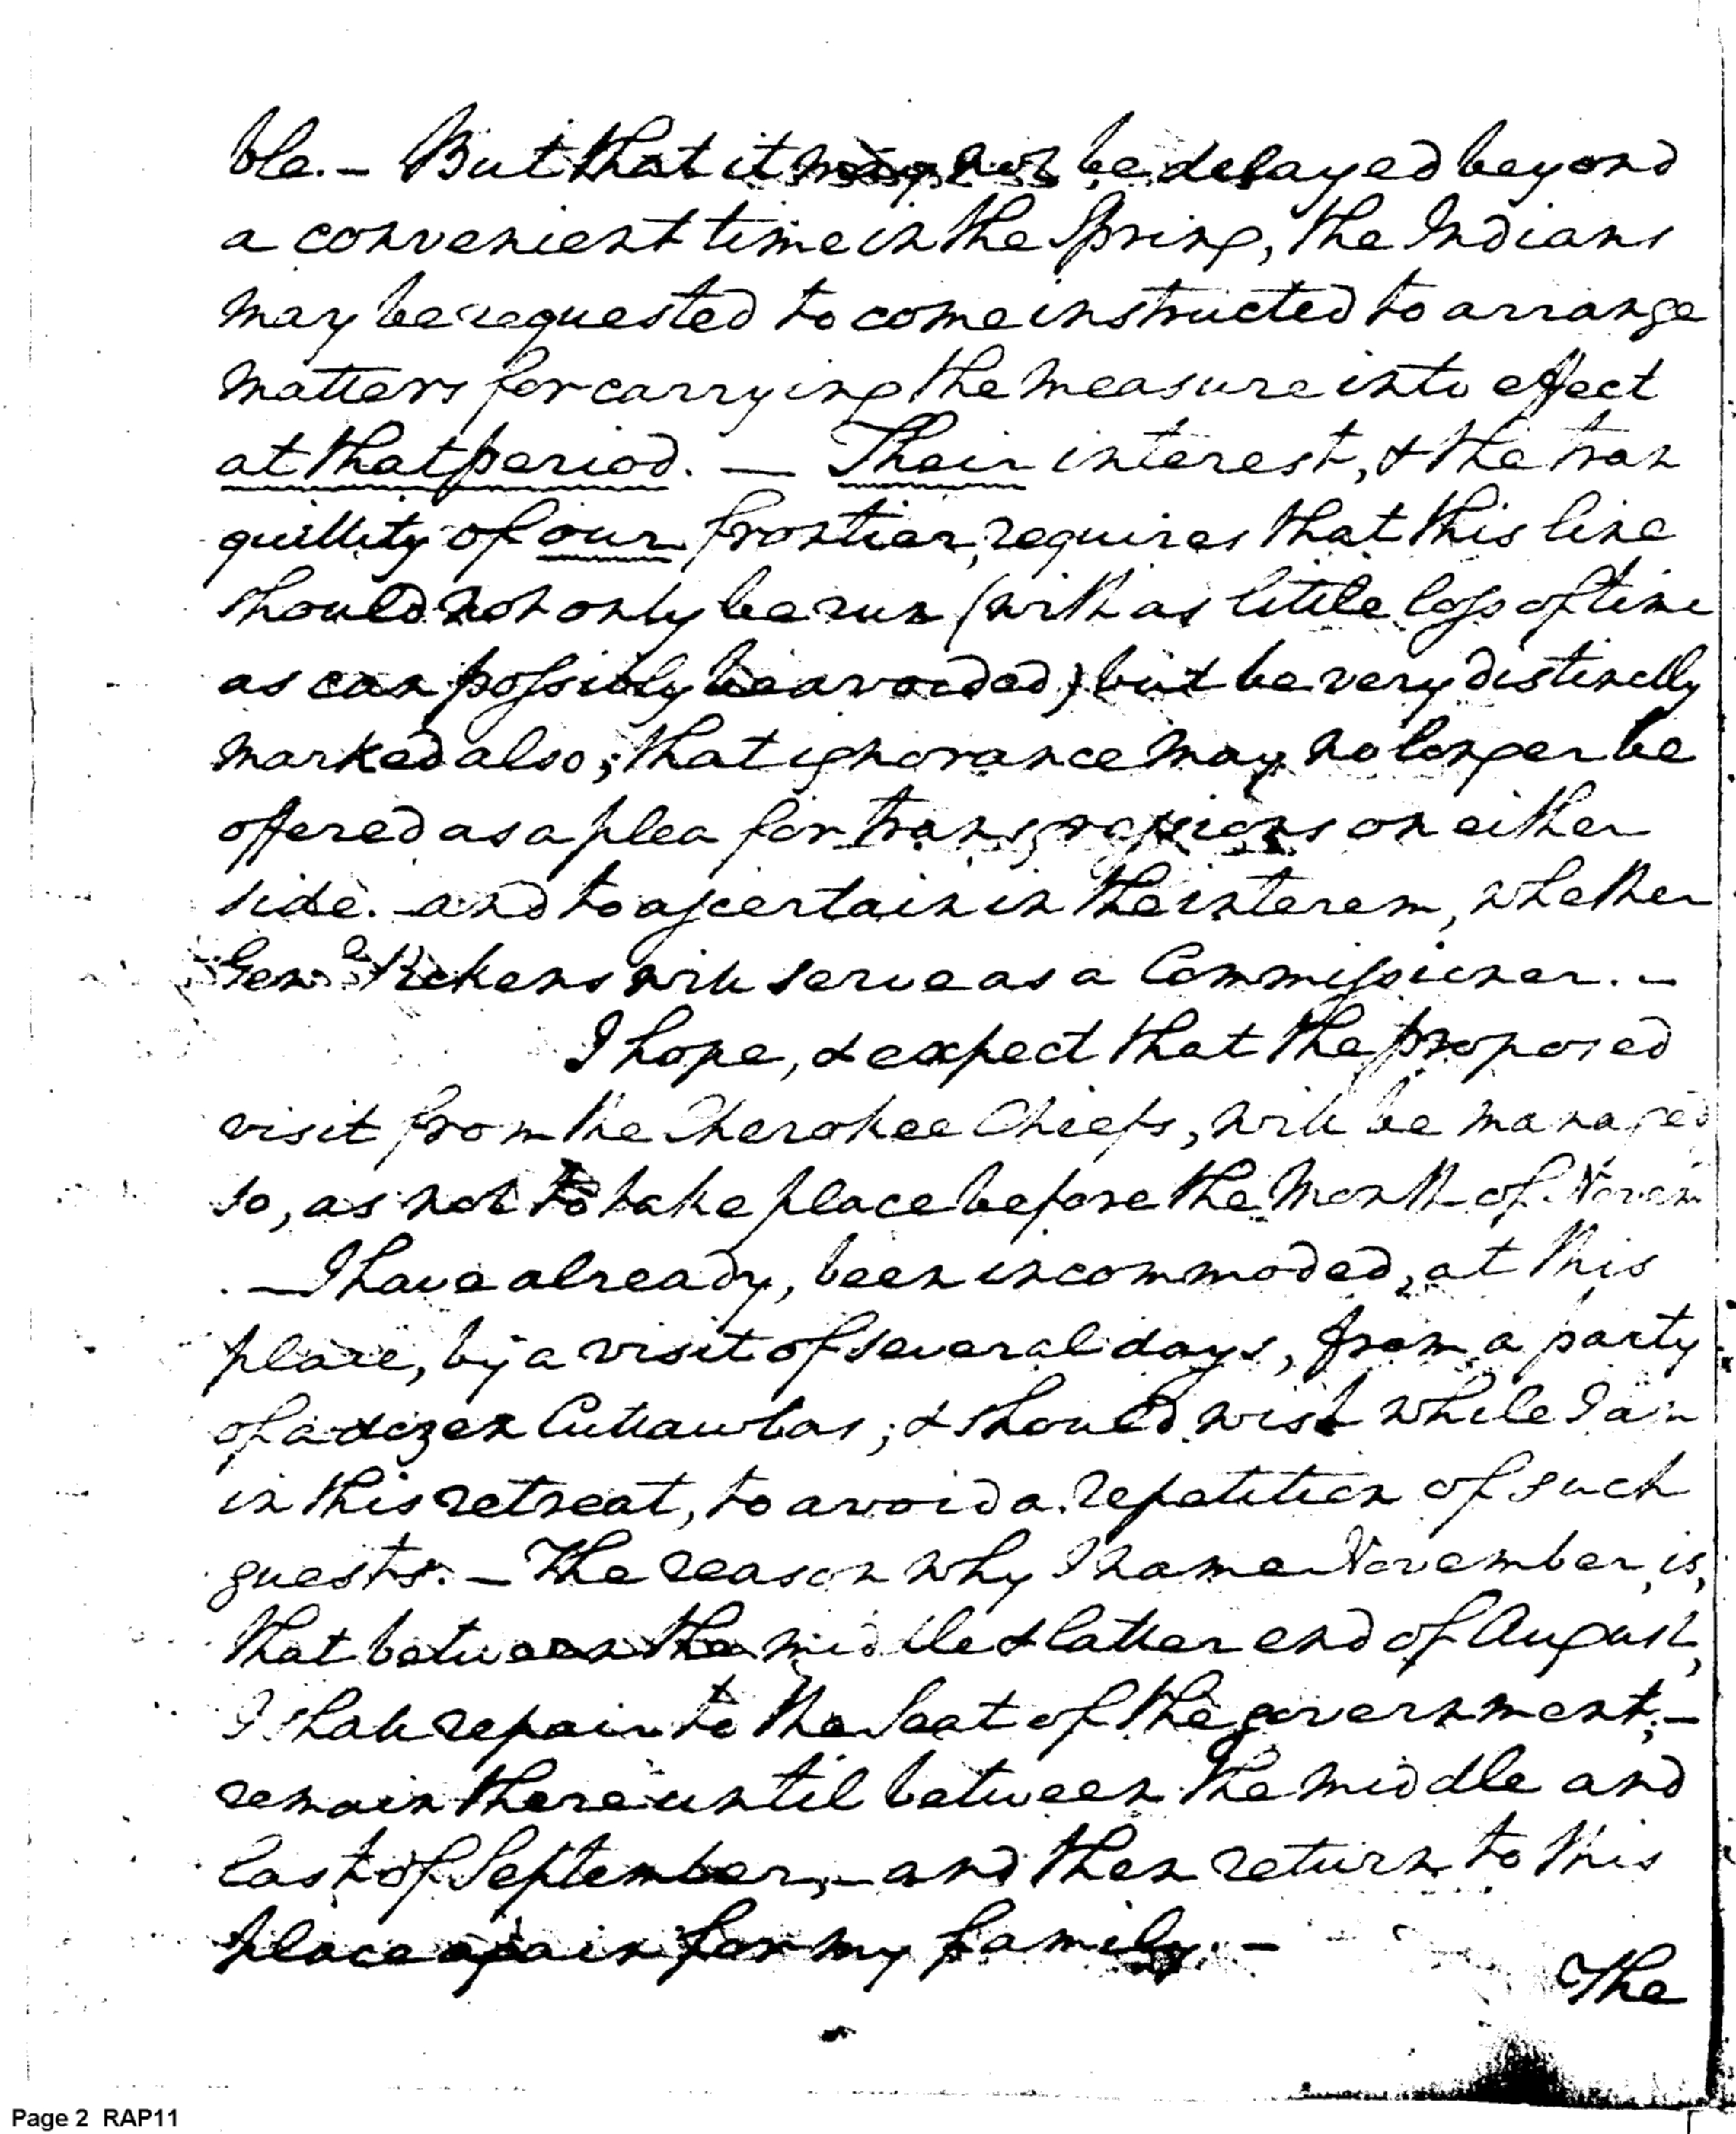 ble. – But that it may not be delayed beyond
a convenient time in the Spring, the Indians
may be requested to come instructed to arrange
matters for carrying the measure into effect
at that period. — Their interest, & the tran
quillity of our frontier, requires that this line
should not only be run (with as little loss of time
as can possibly be avoided) but be very distinctly
marked also; that ignorance may no longer be
offered as a plea for transgressions on either
side. and to ascertain in the interem, whether
Genl. Pickens will serve as a Commissioner. –
I hope, & expect that the proposed
visit from the Cherokee Chiefs, will be managed
so, as not to take place before the Month of Novem
. – I have already, been incommoded, at this
place, by a visit of several days, from a party
of a dozen Cuttawbas; & should wish while I am
in this retreat, to avoid a repetition of such
guests. – The reason why I name November, is,
that between the middle & latter end of August,
I shall repair to the Seat of the government; –
remain there until between the middle and
last of September, – and then return to this
place again for my family. –
The
Page 2 RAP11